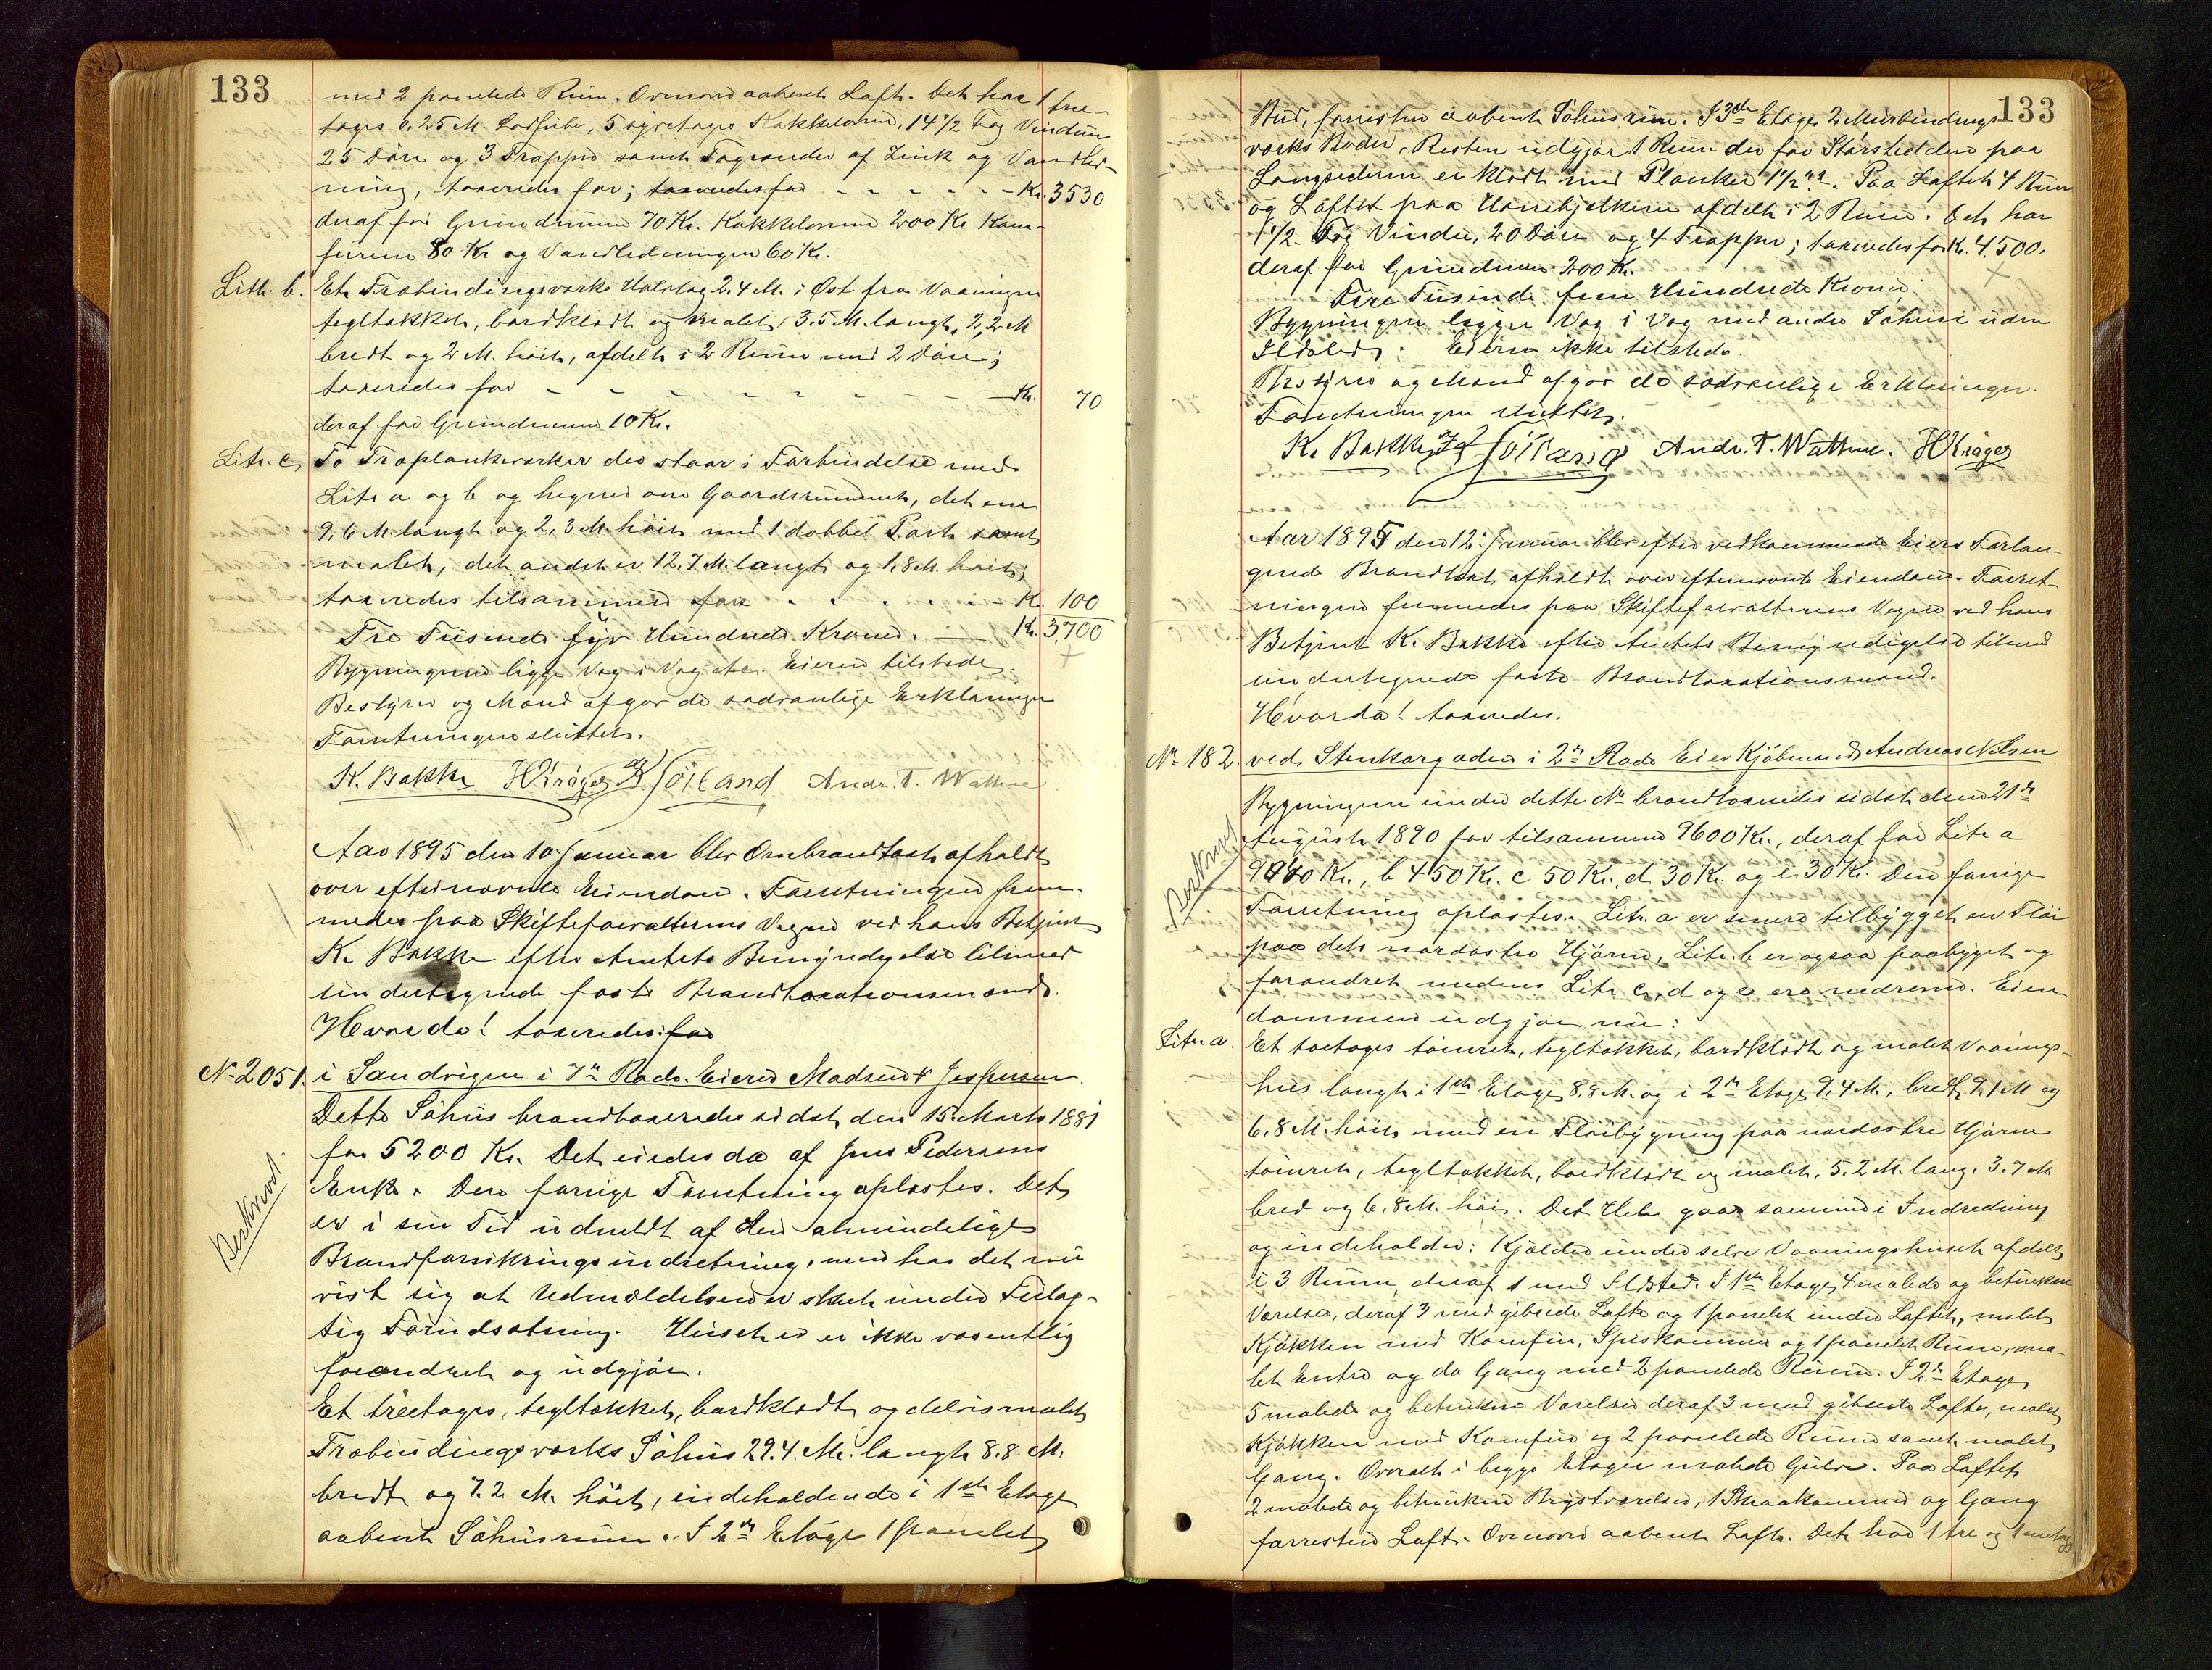 133
med 2 panelede Rum. Ovenover aabent Loft. Det har 1 tre-
tages 6.25 M. Lodpibe, 5 syvetages Kakkelovne, 14 1/2 Fag Vinduer
25 Döre og 3 Trapper samt Tagrender af Zink og Vandled-
ning, taxeredes for; taxeredes for - - - - - - Kr. 3530
deraf for Grundmuren 70 Kr. Kakkelovne 200 Kr. Kom-
furene 80 Kr og Vandledningen 60 Kr.
Litr. b. Et Træbindingsværks Udslag 2.4 M. i Øst fra Vaaningen
tegltækket, bordklædt og malet, 3.5 M. langt, 2,2 M
bredt og 2 M. höit, afdelt i 2 Rum med 2 Döre;
taxeredes for - - - - - - - - Kr. 70
deraf for Grundmuren 10 Kr.
Litr. c, To Træplankeværker der staar i Forbindelse med
Litr a og b og hegner om Gaardsrummet, det ene
9,6 M. langt og 2,3 M. höit med 1 dobbel Port samt
malet, det andet er 12,7 M. langt og 1,8 M. höit;
taxeredes tilsammen for - - - - Kr. 100
Tre Tusinde syv Hundrede Kroner. — Kr. 3,700
Bygningerne ligge Væg i Væg etc. Eieren tilstede.
Bestyrer og Mænd afgav de sædvanlige Erklæringer
Forretningen sluttet.
K. Bakke HKrøger Söiland Andr. T. Wathne
Aar 1895 den 10 Januar blev Ombrandtaxt afholdt
over efternævnte Eiendom. Forretningen frem-
medes paa Skifteforvalterens Vegne ved hans Betjent
K. Bakke efter Amtets Bemyndigelse tilmed
undertegnede faste Brandtaxationsmænd.
Hvorda! taxeredes: for
No 2051. i Sandvigen i 7de Rode. Eiere Madsen & Jespersen.
Dette Söhus brandtaxeredes sidst den 15. Marts 1881
for 5200 Kr. Det eiedes da af Jens Pedersens
Enke. Den forrige Forretning oplæstes. Det
er i sin Tid udmeldt af den almindelige
Brandforsikringsindretning, men har det nu
vist sig at Udmældelsen er skeet under Feilag-
tig Forudsætning. Huset er ikke væsentlig
forandret og udgjör.
Beskrevet.
Et treetages, tegltækket, bordklædt og delvis malet
Træbindingsværks Söhus 29.4. M. langt 8.8 M.
bredt og 7.2 M. höit, indeholdende i 1ste Etage
aabent Söhusrum. I 2den Etage 1 panelet
133
Rum, forresten aabent Söhusrum. I 3die Etage 2 Murbindings-
værks Boder. Resten udgjör 1 Rum der for Störstedelen paa
Langsiderne er klædt med Planker 1 1/2". Paa Loftet 4 Rum
og Loftet paa Hanebjelkerne afdelt i 2 Rum. Det har
1 1/2 Fag Vinduer, 20 Döre og 4 Trapper; taxeredes for Kr. 4,500.
deraf for Grundmuren 200 Kr.
Fire Tusinde fem Hundrede Kroner.
Bygningen ligger Væg i Væg med andre Söhuse uden
Ildsted. Eieren ikke tilstede.
Bestyrer og Mænd afgav de sædvanlige Erklæringer.
Forretningen sluttet.
K. Bakke Söiland Andr. T. Wathne. HKrøger
Aar 1895 den 12. Januar blev efter vedkommende Eiers Forlan-
gende Brandtaxt afholdt over efternævnte Eiendom. Forret-
ningen fremmedes paa Skifteforvalterens Vegne ved hans
Betjent K. Bakke efter Amtets Bemyndigelse tilmed
undertegnede faste Brandtaxationsmænd.
Hvorda! taxeredes.
No 182. ved Stenkargaden i 2den Rode Eier Kjöbmand Andreas Olsen.
Bygningerne under dette No brandtaxeredes sidst den 21de
August 1890 for tilsammen 9600 Kr., deraf for Litr a
9040 Kr., b 450 Kr. c 50 Kr., d. 30 Kr. og e 30 Kr. Den forrige
Forretning oplæstes. Litr. a er senere tilbygget en Flöi
Beskrevet
paa det nordöstre Hjörne, Litr. b er ogsaa paabygget og
forandret medens Litr. c, d og e ere nedrevne. Eien-
dommen udgjör nu:
Litr. a. Et toetages tömret, tegltækket, bordklædt og malet Vaanings-
hus langt i 1ste Etage 8,8 M. og i 2den Etage 9,4 M., bredt 9.1 M og
6.8 M. höit med en Flöibygning paa nordöstre Hjörne
tömret, tegltækket, bordklædt og malet, 5.2 M. lang. 3.7 M.
bred og 6,8 M. höi. Det Hele gaar sammen i Indredning
og indeholder: Kjælder under selve Vaaningshuset afdelt
i 3 Rum, deraf 1 med Ildsted. I 1ste Etage 4 malede og betrukne
Værelser, deraf 3 med gibsede Lofte og 1 panelet under Loftet, malet
Kjökken med Komfur, Spiskammer og 1 panelet Rum, ma-
let Entre og do Gang med 2 panelede Rum. I 2den Etage
5 malede og betrukne Værelser deraf 3 med gibsede Lofte, malet
Kjökken med Komfur og 2 panelede Rum samt malet
Gang. Overalt i begge Etager malede Gulve. Paa Loftet
2 malede og betrukne Kvistværelser, 1 Skraakammer og Gang
forresten Loft. Ovenover aabent Loft. Det har 1 tre og 1 entages